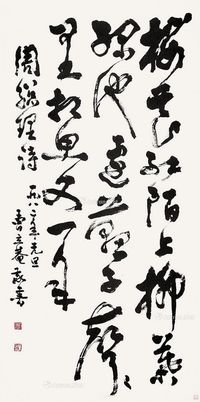 樱花红陌上柳叶
绿池边燕子声声
里相思又一年
周总理诗
一九八 年元旦
曹立庵敬书